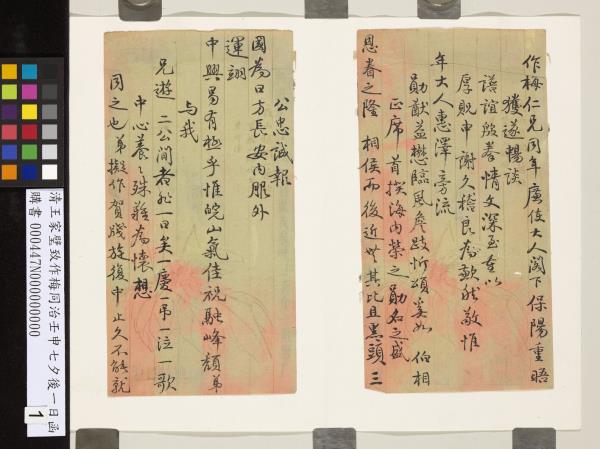 作梅仁兄同年廉使大人閣下保陽重晤
獲遂暢談
譜誼殷拳情文深至重以
厚貺申謝久稽良為歉然敬惟
年大人惠澤旁流
勛猷益懋臨風參跂忻頌奚如伯相
正席首揆海內榮之勛名之盛
恩眷之隆相侯而後近世其比且黑頭三
公忠誠報
國為日方長安內服外
運翊
中興曷有極乎惟皖山氣佳祝融峰頹弟
与我
兄遊二公間者於一日矣一慶一弔一泣一歌
中心養養殊難為懷想
同之也弟擬作賀牋旋復中止久不能就
清王家壁致作梅同治壬申七夕後一日函
購書 000447N000000000
1